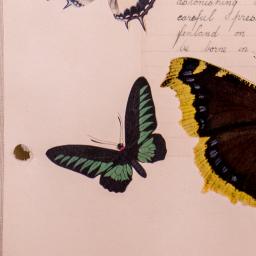 astonishing
careful spres
finland on
be borne in